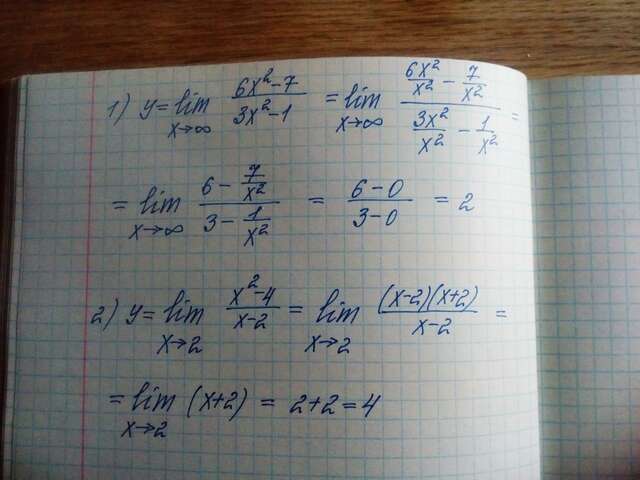 1) y = lim x→∞ (6x² - 7)/(3x² - 1) = lim x→∞ (6x²/x² - 7/x²)/(3x²/x² - 1/x²) =
= lim x→∞ (6 - 7/x²)/(3 - 1/x²) = (6 - 0)/(3 - 0) = 2
2) y = lim x→2 (x² - 4)/(x - 2) = lim x→2 ((x-2)(x+2))/(x-2) =
= lim x→2 (x+2) = 2+2 = 4